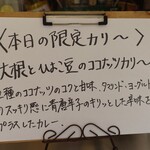 〈本日の限定カリ～〉
大根とひよ豆のココナッツカリ～
種のココナッツのコクと甘味、タマリンド・ヨーグルト
スッキリ感に青唐辛子のキリッとした辛味を
プラスしたカレー。